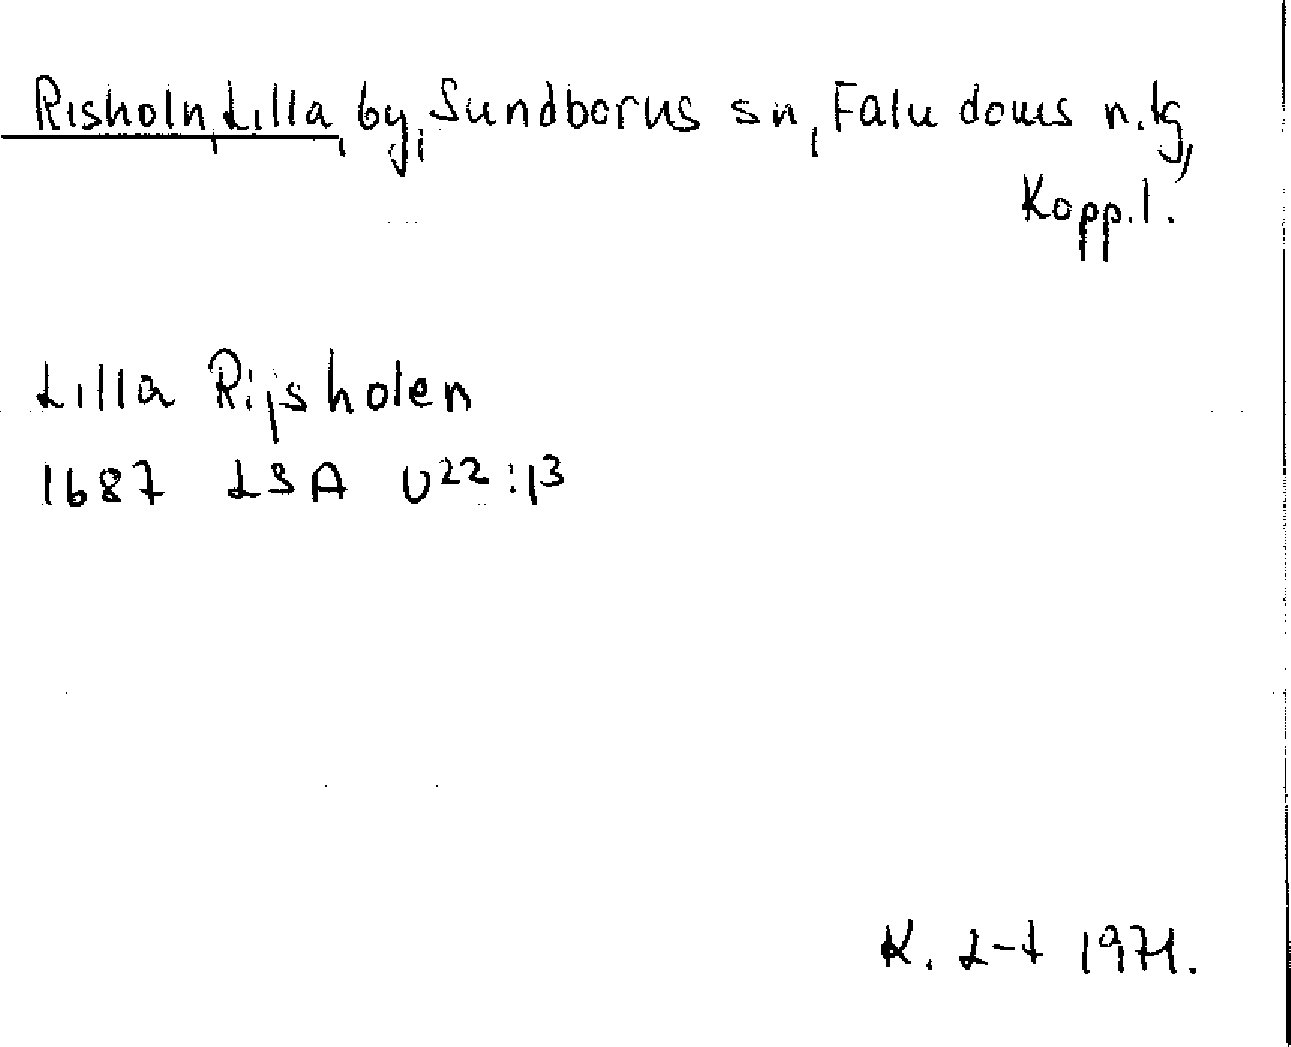 Risholn, Lilla, by, Sundborns sn, Falu doms n. tg,
Kopp. l.
Lilla Rijsholen
1687 LSA U22:13
K. L-t 1971.